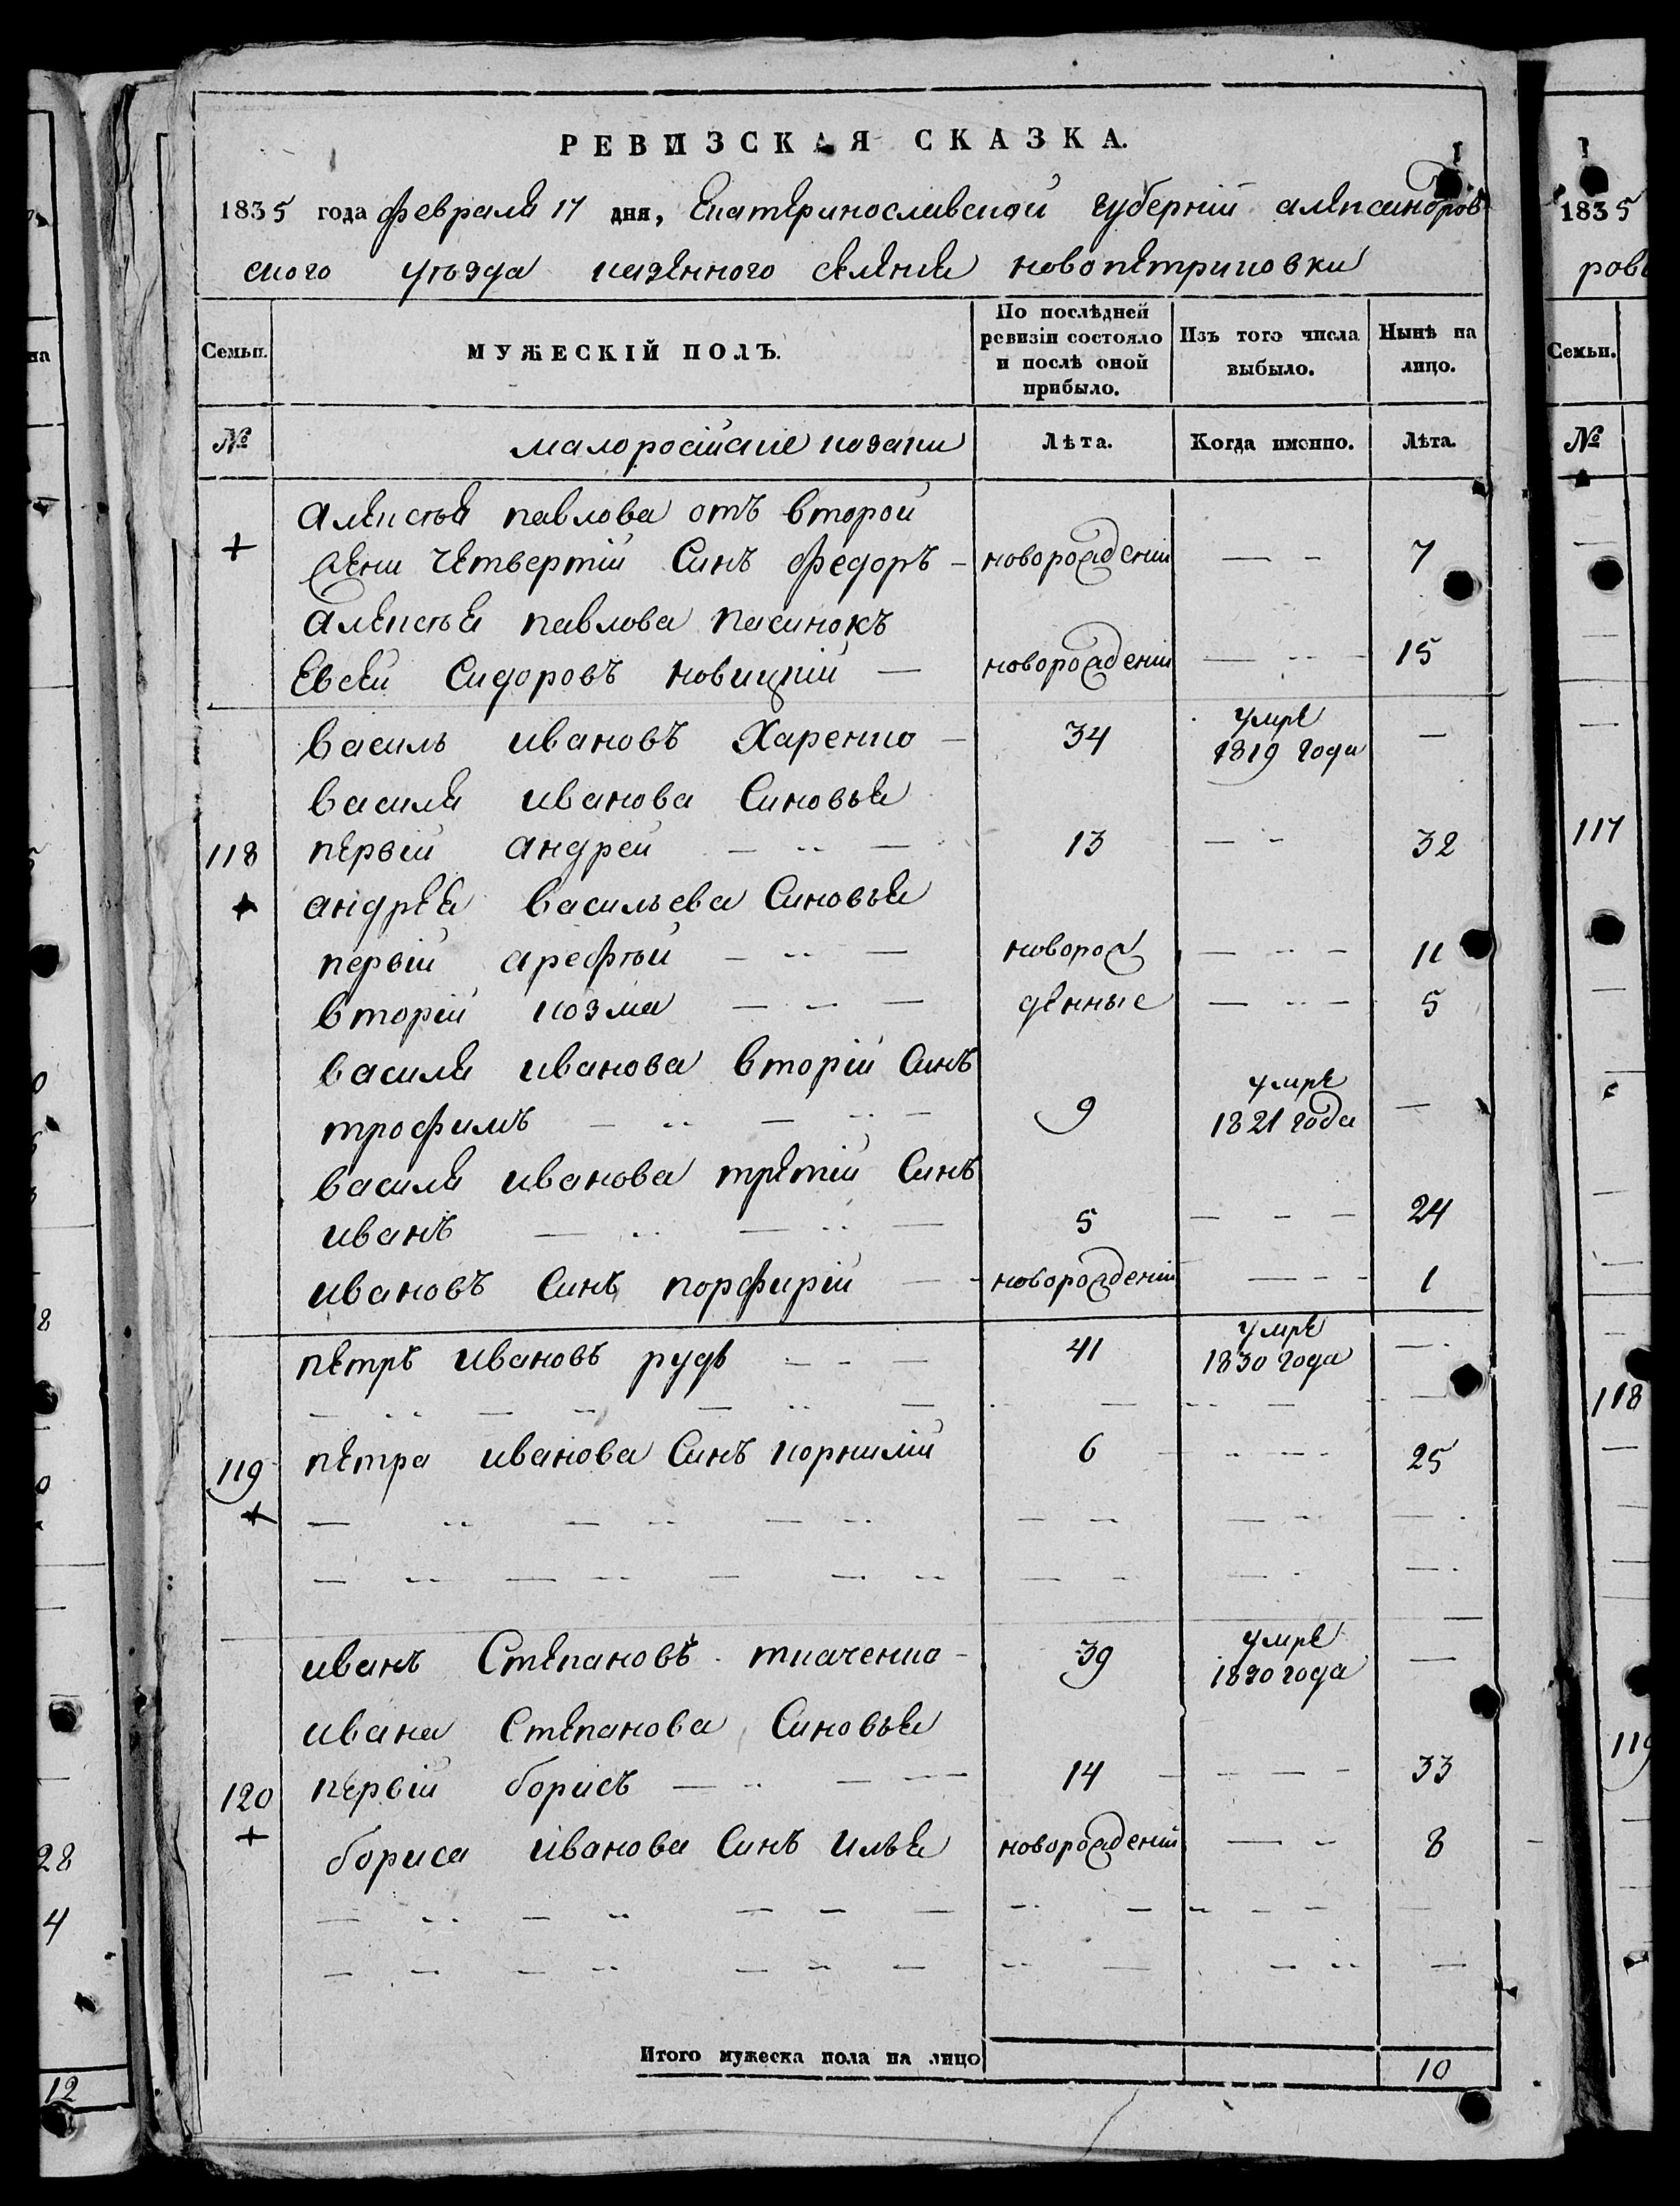 РЕВИЗСКАЯ СКАЗКА.
1835 года февраля 17 дня, Екатеринославской губерніи александров
ского уѣзда казенного селения новопетриковки
Семьи. МУЖЕСКІЙ ПОЛЪ. По послѣдней ревизіи состояло и послѣ оной прибыло. Изъ того числа выбыло. Нынѣ на лицо.
№ малоросійские козаки Лѣта. Когда именно. Лѣта.
алексѣя павлова отъ второй
+ жени четвертій Синъ федоръ новорожденій 7
алексѣя павлова пасинокъ
Евсей Сидоровъ новицкій новорожденій 15
василь ивановъ Харенко 34 умре 1819 года
василя иванова Синовья
118 первій андрей 13 32
+ андрея васильева Синовья
первій арефтей новорож 11
вторій козма денные 5
василя иванова вторій Синъ
трофимъ 9 умре 1821 года
василя иванова третій Синъ
иванъ 5 24
ивановъ Синъ порфирій новорожденій 1
петръ ивановъ рудь 41 умре 1830 года
119 петра иванова Синъ корнилій 6 25
+
иванъ Степановъ ткаченко 39 умре 1830 года
ивана Степанова Синовья
120 первій борисъ 14 33
+ бориса иванова Синъ илья новорожденій 8
Итого мужеска пола на лицо 10
1835
рово
Семьи.
№
117
118
119
на
8
28
4
12